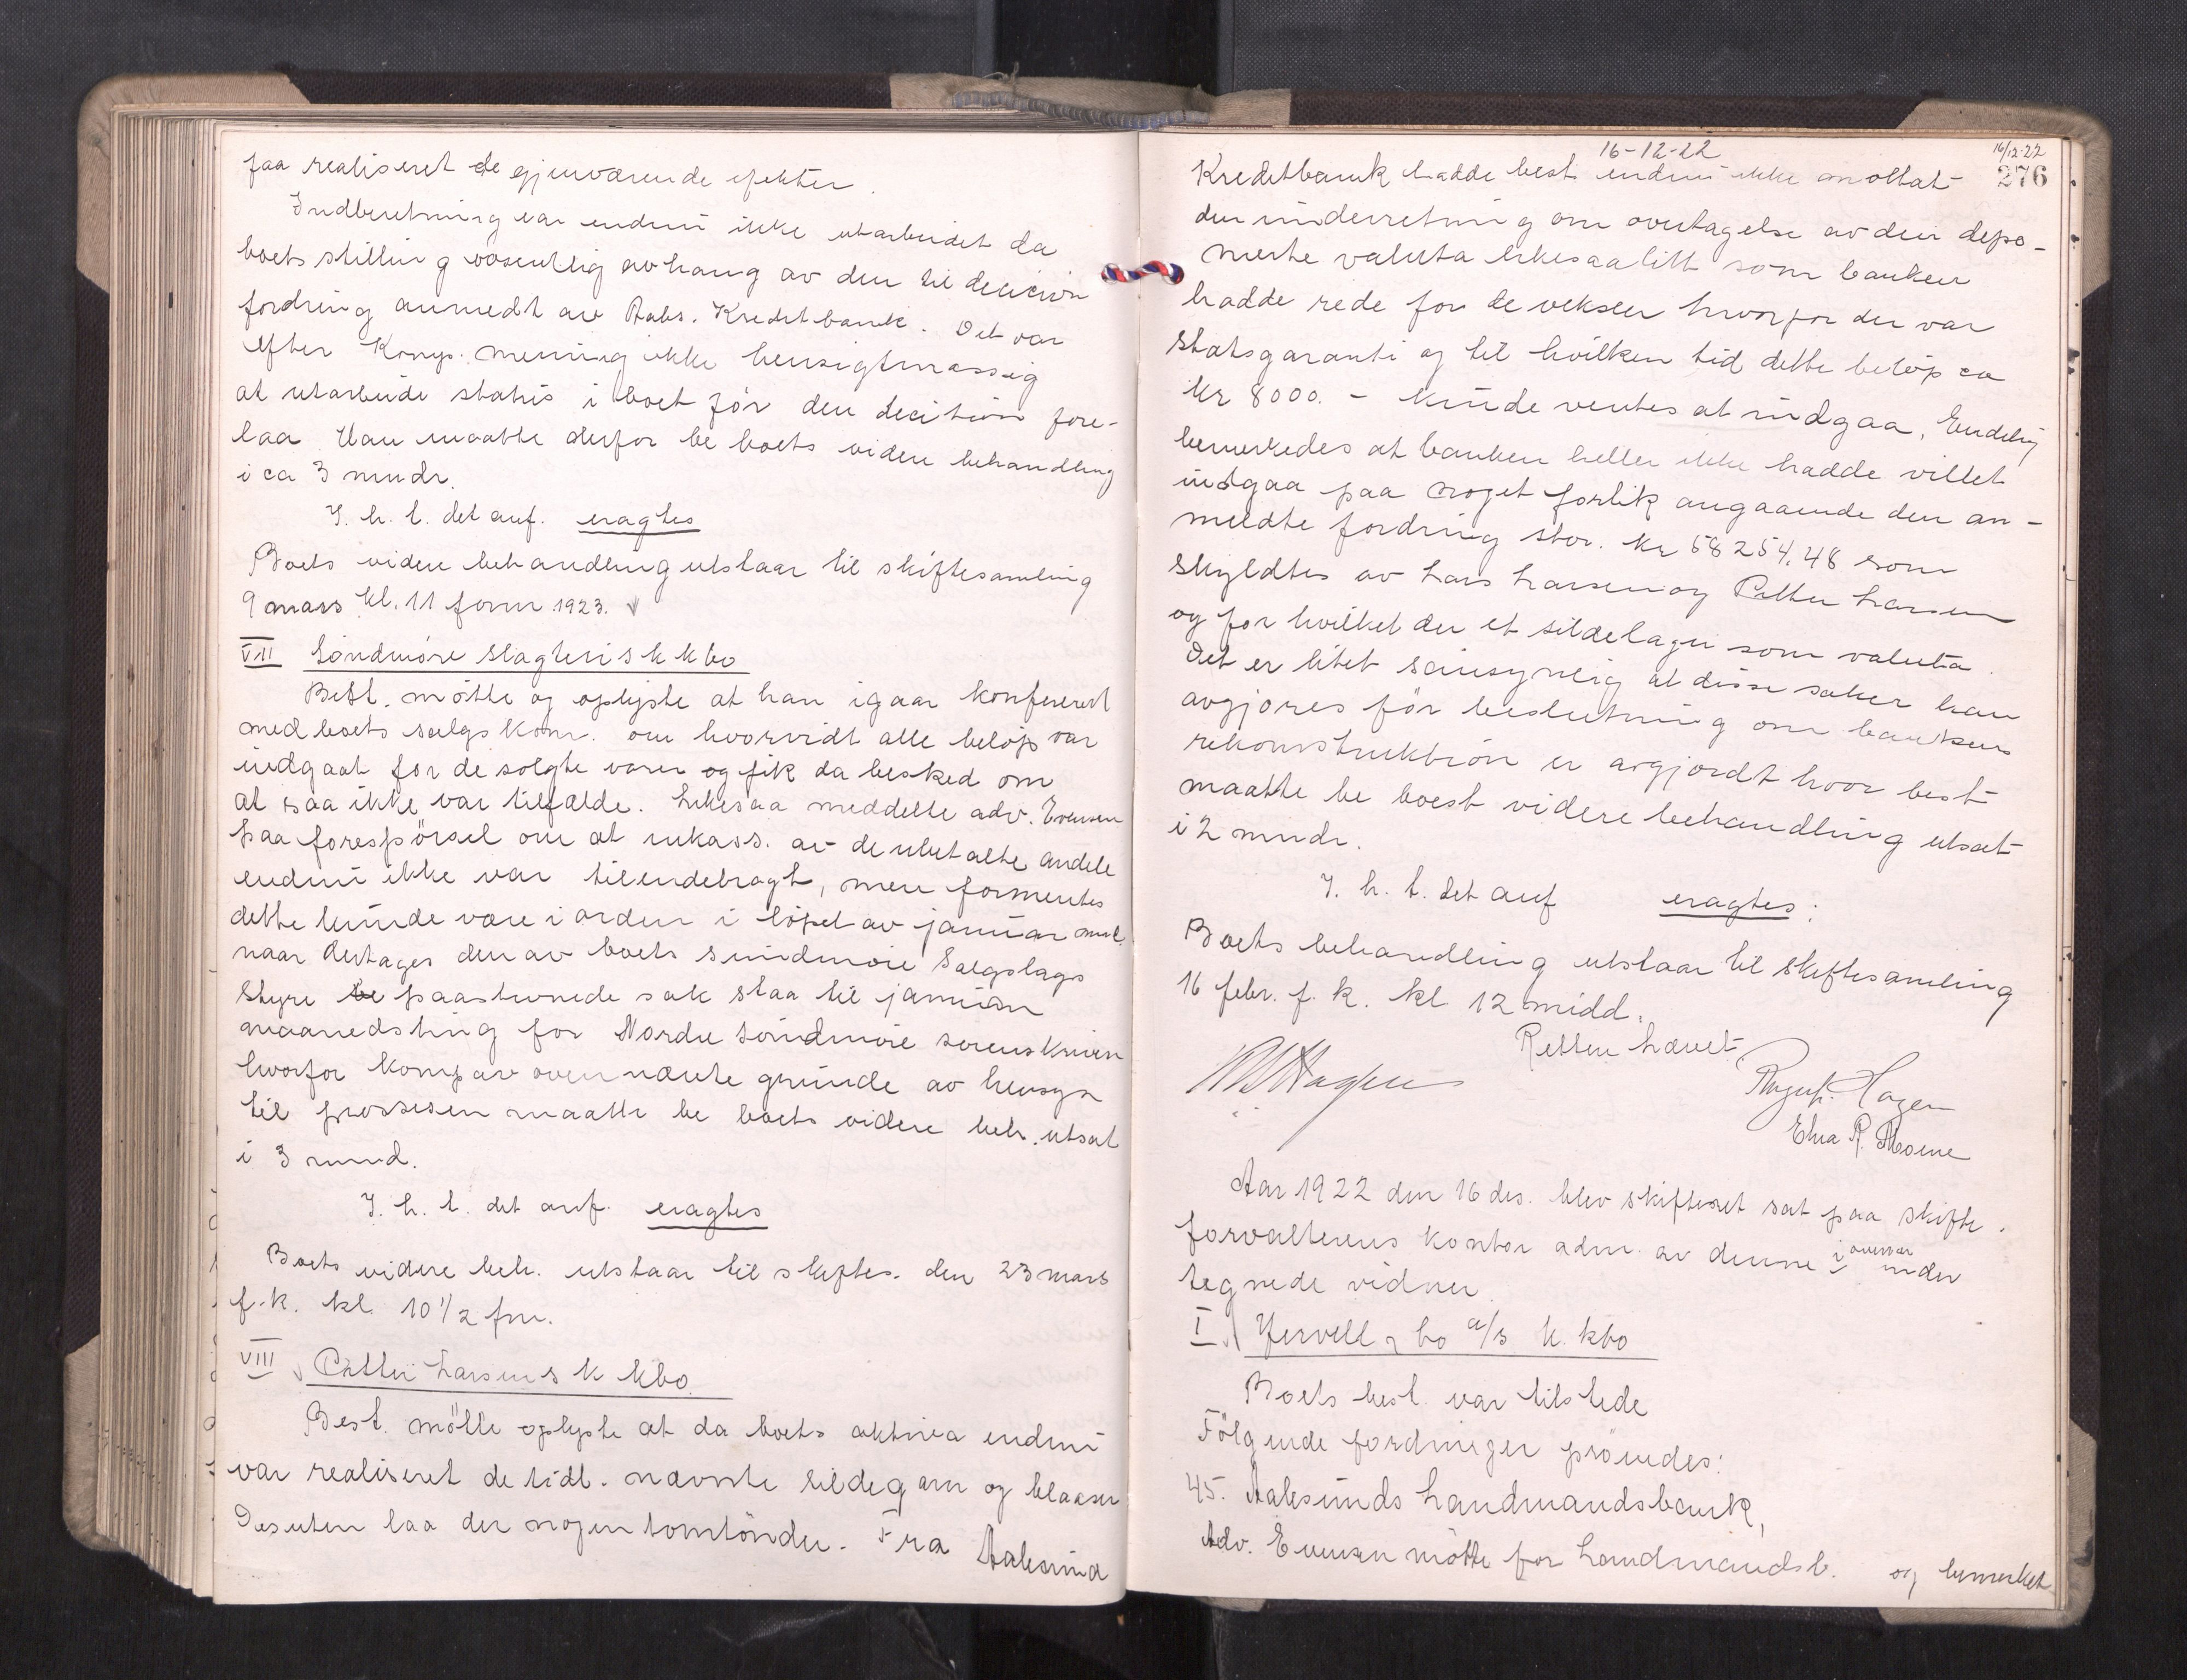 faa realiseret de gjenværende efekter.
Indberetning var endnu ikke utarbeidet da
boets stilling væsentlig avhang av den til decision
fordring anmedt av Aals. Kreditbank. Det var
efter Komp. mening ikke hensigtmæssig
at utarbeide status i boet før den decition fore-
laa Han maatte derfor be boets videre behandling
i ca 3 mndr.
I. h. t. det anf. eragtes
Boets videre behandling utstaar til skiftesamling
9 mars kl. 11 form 1923.
VII Søndmøre Slagteris k kbo
Best. møtte og oplyste at han igaar konfereret
med boets salgskom. om hvorvidt alle beløp var
indgaat for de solgte varer og fik da besked om
at saa ikke var tilfælde. Likesaa meddelte adv. Evensen
paa forespørsel om at inkass. av de ubetalte andele
endnu ikke var tilendebragt, men formentes
dette kunde være i orden i løpet av januar mnd.
naar den av boets Sundmøre Salgslags
Styre paastevnede sak staa til januar
maanedsting for Nordre Søndmøre sorenskriveri
hvorfor komp av ovennævnte grunde av hensyn
til prossesen maatte be boets videre beh. utsat
i 3 mnd.
I. h. t. det anf. eragtes
Boets videre beh. utstaar til skiftes. den 23 mars
f.k. kl. 10 1/2 fm.
VIII Petter Larsens k kbo
Best. møtte oplyste at da boets aktiva endnu
var realiseret de tidl. nævnte sildegarn og blaaser
Desuten laa der nogen tomtønder. Fra Aalesund
16-12-22
16/12-22
276
Kreditbank hadde best endnu ikke mottat
den underretning om overtagelse av den depo-
nerte valuta likesaalitt som banken
hadde rede for de veksler hvorfor der var
statsgaranti og til hvilken tid dette beløp ca
kr 8000.- kunde ventes at indgaa. Endelig
bemerkedes at banken heller ikke hadde villet
indgaa paa noget forlik angaaende den an-
meldte fordring stor. kr 58254,48 som
skyldtes av Lars Larsen og Petter Larsen
og for hvilket der et sildelager som valuta.
Det er litet sansynlig at disse saker kan
avgjøres før beslutning om bankens
rekonstruktion er avgjordt hvor best
maatte be boest videre behandling utsat
i 2 mndr.
I. h. t. det anf eragtes:
Boets behandling utstaar til skiftesamling
16 febr. f. k. kl 12 midd.
Retten hævet
Hagen
August Hagen
Elna R. Moene
Aar 1922 den 16 des. blev skifteret sat paa skifte-
forvalterens kontor adm. av denne i overvær under
tegnede vidner
I Yervell & Co a/s k. kbo
Boets best. var tilstede
Følgende fordringer prøvedes:
45. Aalesunds Handmandsbank,
Adv. Evensen møtte for Handmandsb. og bemerket